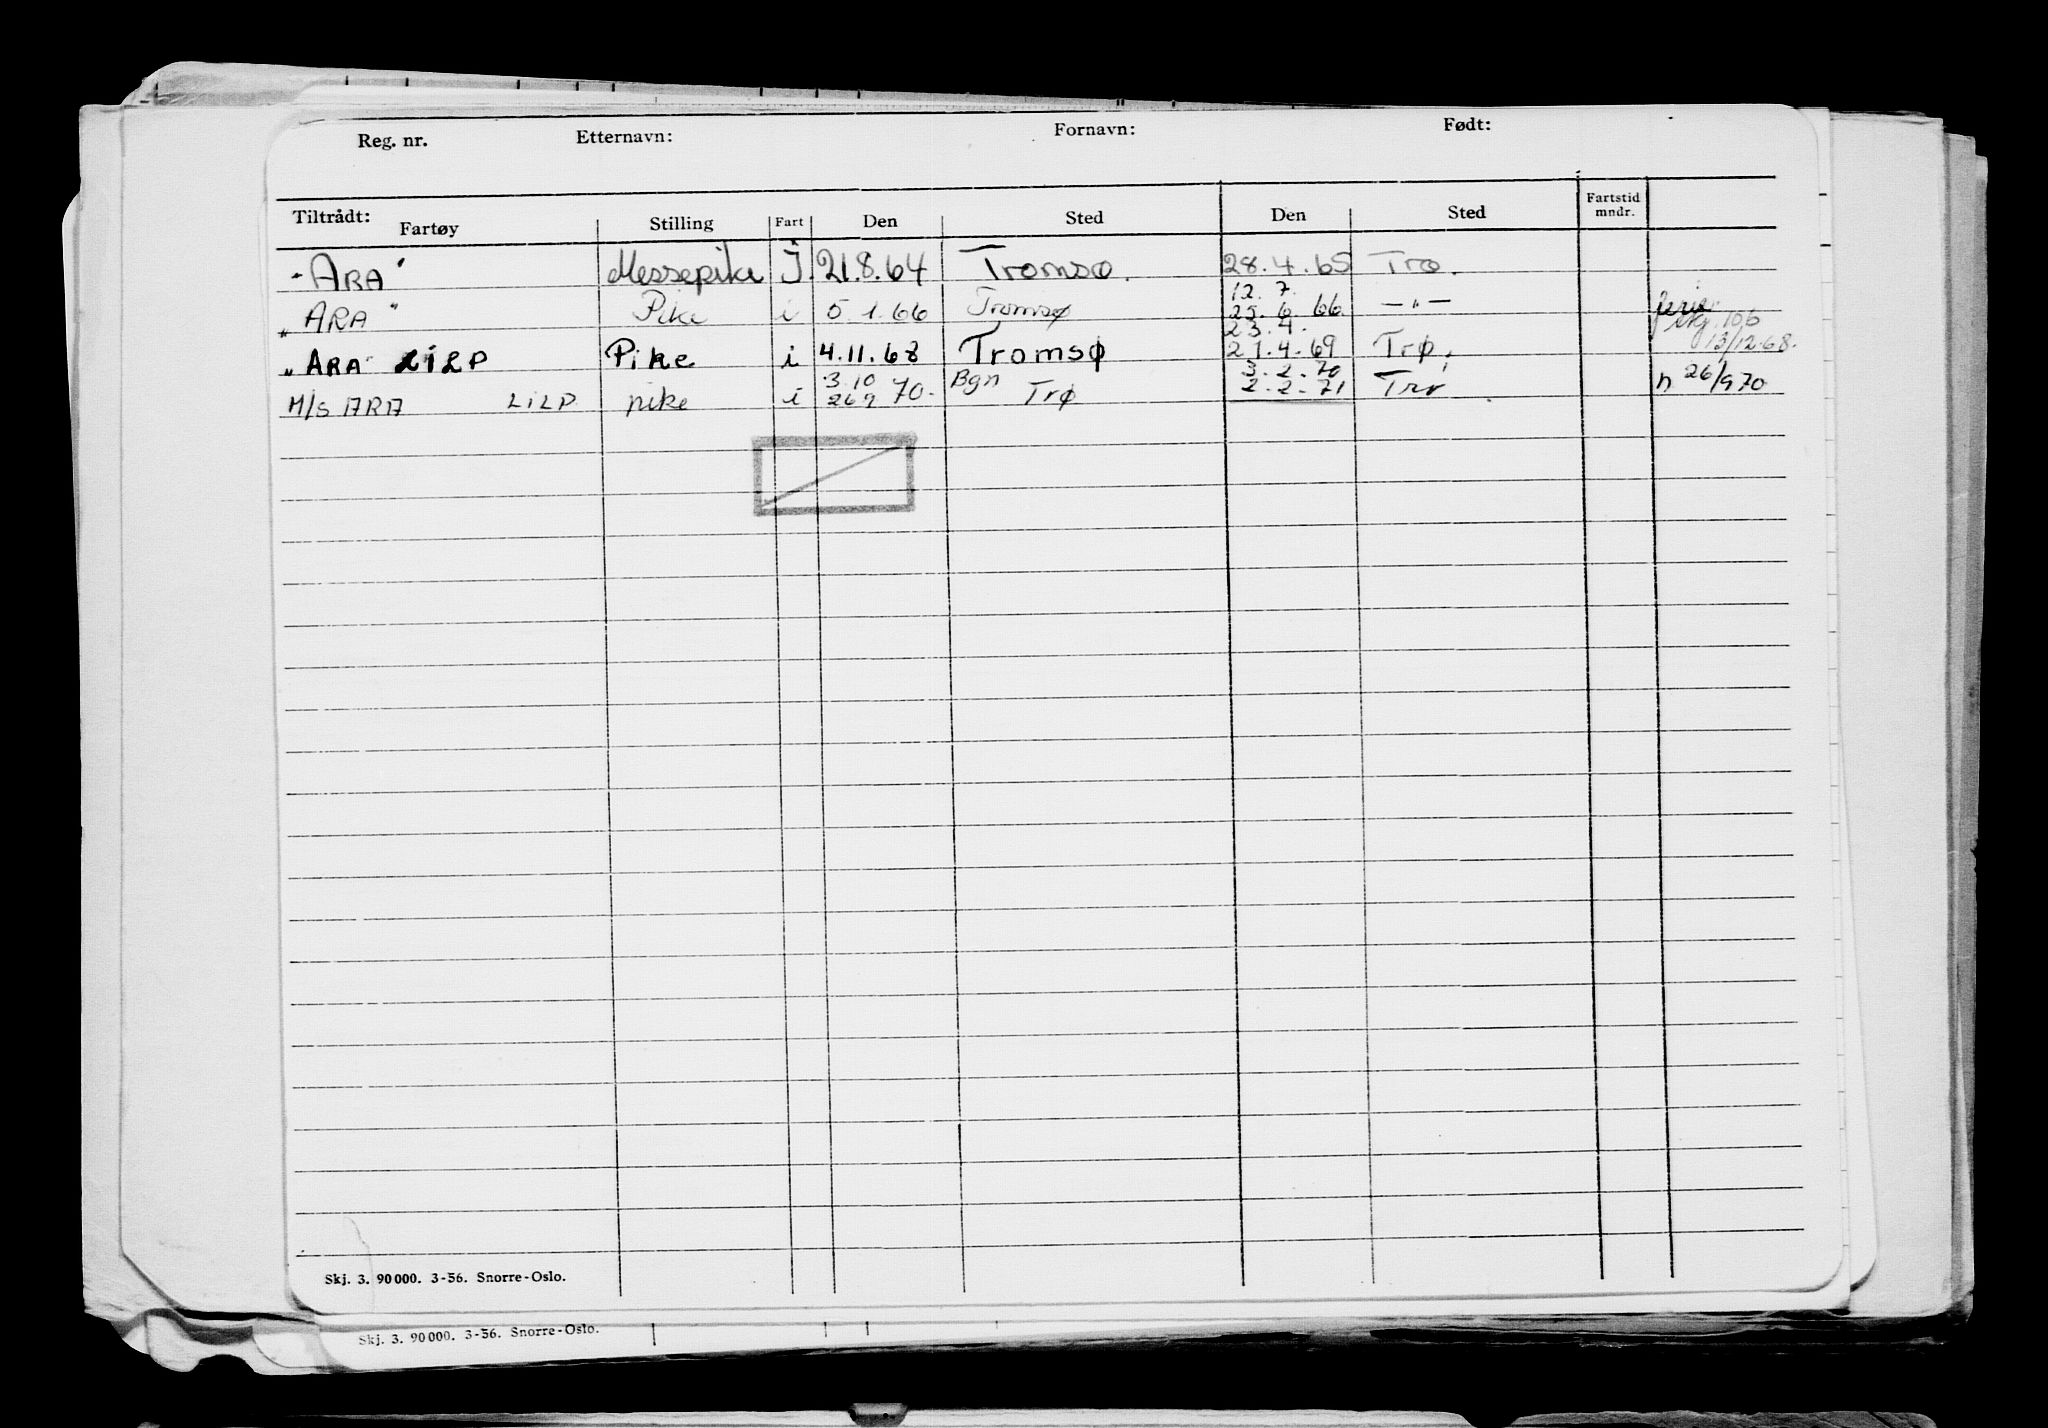 Reg. nr. Etternavn: Fornavn: Født:
Tiltrådt: Fartøy Stilling Fart Den Sted Den Sted Fartstid mndr.
"ARA" Messepike I 21.8.64 Tromsø. 28.4.65 Trø.
12.7.
"ARA" Pike i 5.1.66 Tromsø 25.6.66 —"— ferie
23.4. skj. 106
"ARA" LILP Pike i 4.11.68 Tromsø 21.4.69 Trø. 13/12.68.
3.10 Bgn 3.2.70
M/S ARA LILP pike i 26 9 70. Trø 2.2.71 Trø n 26/9 70
Skj. 3. 90 000. 3-56. Snorre-Oslo.
Skj. 3. 90 000. 3-56. Snorre-Oslo.